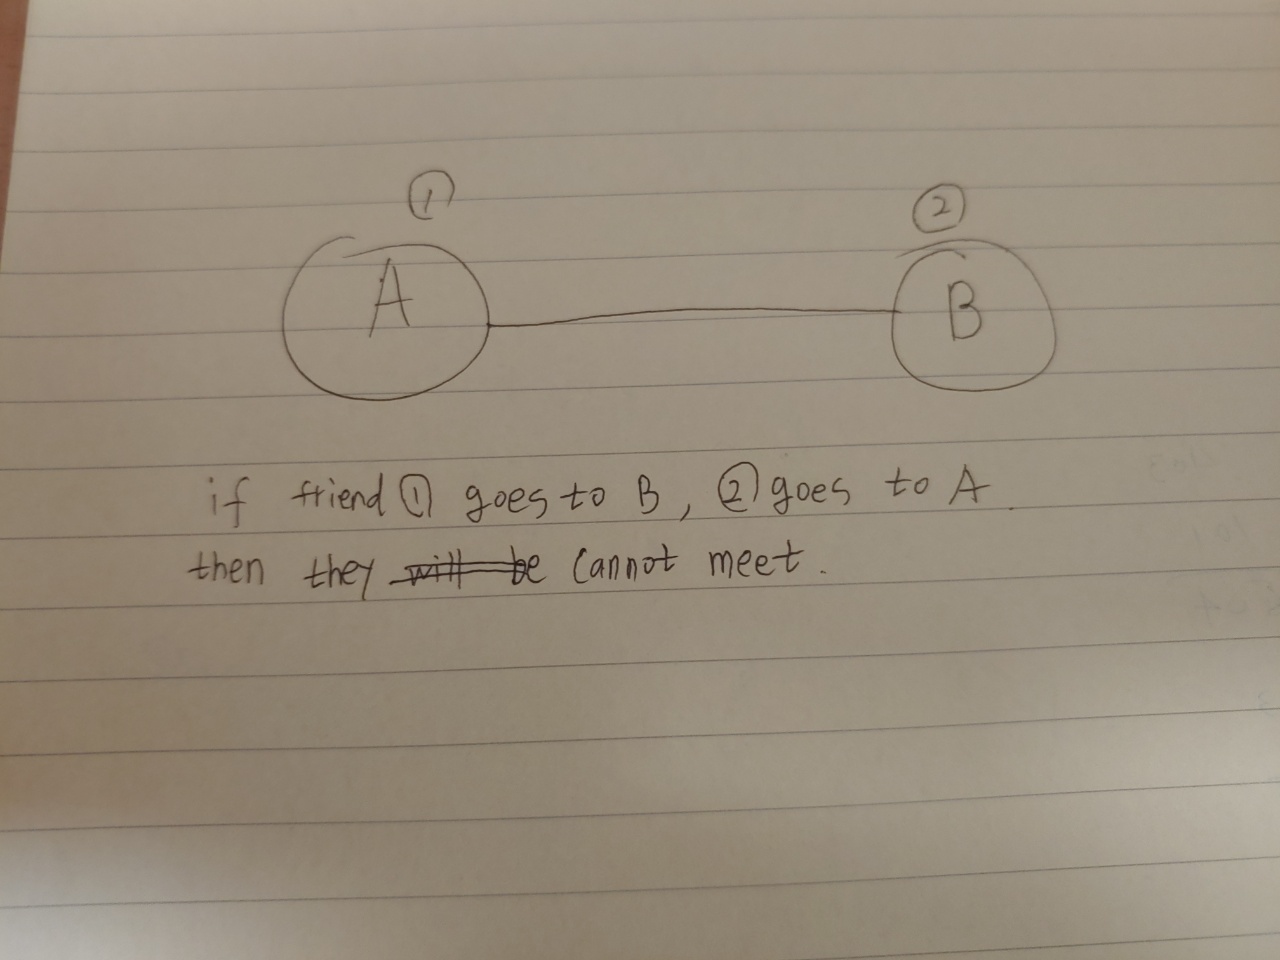 ① ②
A B
if friend ① goes to B, ② goes to A.
then they will be cannot meet.